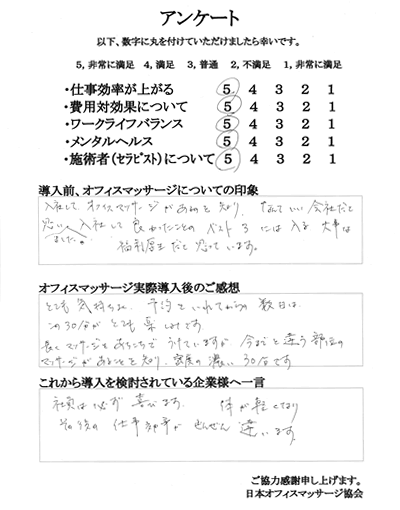 アンケート
以下、数字に丸を付けていただけましたら幸いです。
5, 非常に満足 4, 満足 3, 普通 2, 不満足 1, 非常に満足
・仕事効率が上がる 5 4 3 2 1
・費用対効果について 5 4 3 2 1
・ワークライフバランス 5 4 3 2 1
・メンタルヘルス 5 4 3 2 1
・施術者(セラピスト)について 5 4 3 2 1
導入前、オフィスマッサージについての印象
入社して、オフィスマッサージがあるのを知り、なんていい会社だと
思い 入社して良かったことのベスト3には入る 大事な
ました。 福利厚生だと思っています。
オフィスマッサージ実際導入後のご感想
とても気持ちよく、予約をいれてからの数日は、
この30分がとても楽しみです。
長くマッサージをあちこちでうけていますが、今までと違う部位の
マッサージがあることを知り、密度の濃い30分です
これから導入を検討されている企業様へ一言
社員は必ず喜びます。 体が軽くなり
その後の仕事効率がぜんぜん違います。
ご協力感謝申し上げます。
日本オフィスマッサージ協会